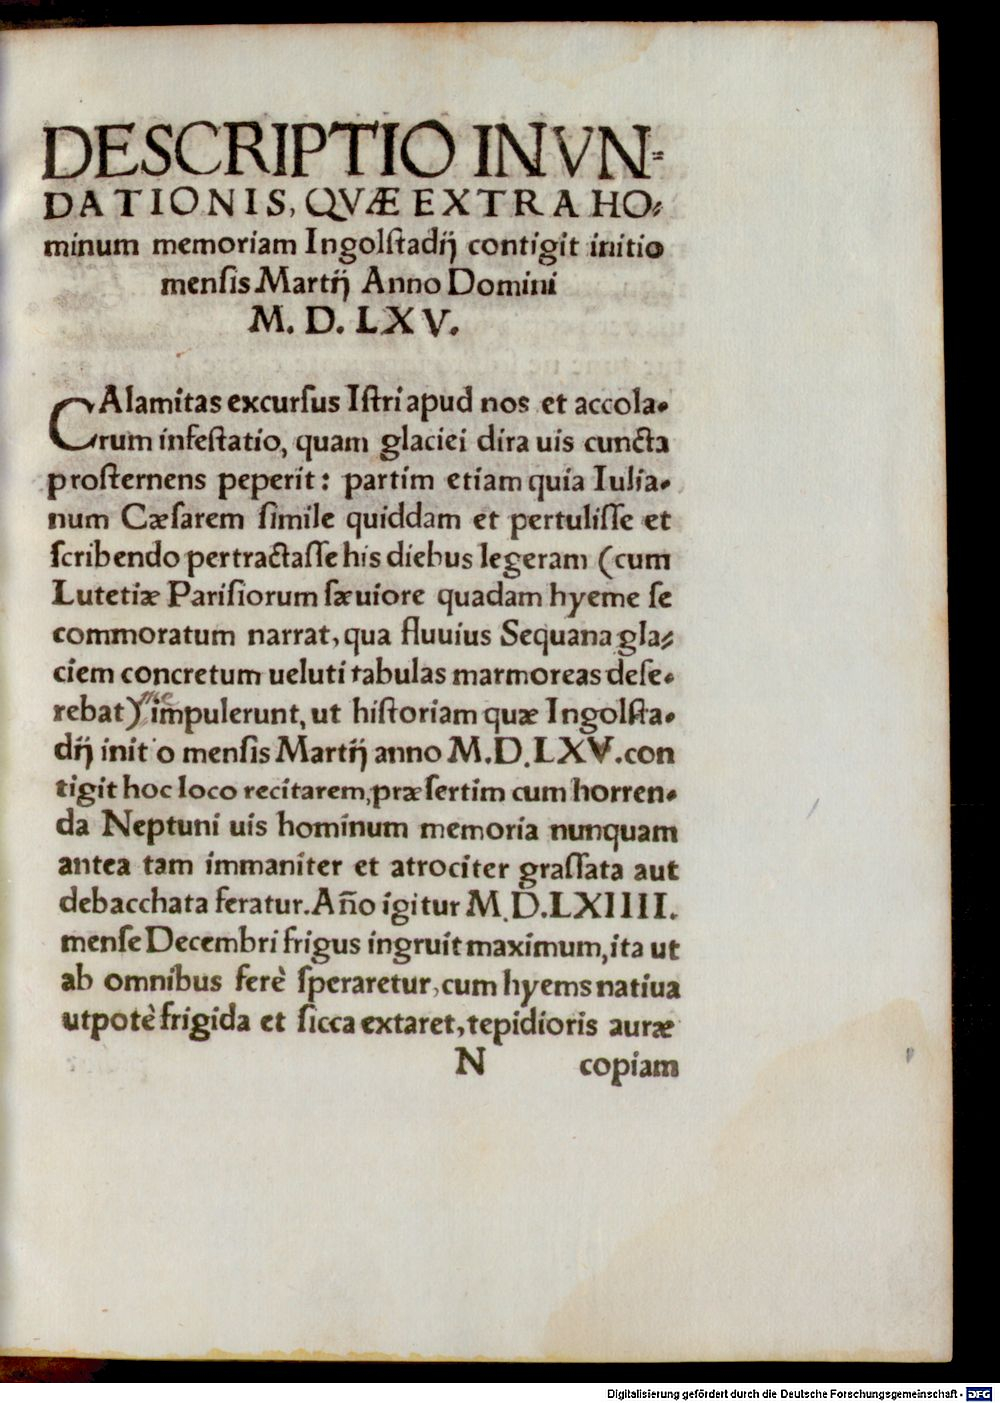 DESCRIPTIO INVN-
DATIONIS, QVÆ EXTRA HO-
minum memoriam Ingolſtadij contigit initio
menſis Martij Anno Domini
M. D. LXV.
CAlamitas excurſus Iſtri apud nos et accola-
rum infeſtatio, quam glaciei dira uis cuncta
proſternens peperit: partim etiam quia Iulia-
num Cæſarem ſimile quiddam et pertuliſſe et
ſcribendo pertractaſſe his diebus legeram (cum
Lutetiæ Pariſiorum ſæuiore quadam hyeme ſe
commoratum narrat, qua fluuius Sequana gla-
ciem concretum ueluti tabulas marmoreas defe-
rebat) me impulerunt, ut hiſtoriam quæ Ingolſta-
dij initio menſis Martij anno M.D.LXV.con
tigit hoc loco recitarem, præſertim cum horren-
da Neptuni uis hominum memoria nunquam
antea tam immaniter et atrociter graſſata aut
debacchata feratur. Año igitur M.D.LXIIII.
menſe Decembri frigus ingruit maximum, ita ut
ab omnibus ferè ſperaretur, cum hyems natiua
utpotè frigida et ſicca extaret, tepidioris auræ
N copiam
Digitalisierung gefördert durch die Deutsche Forschungsgemeinschaft - DFG